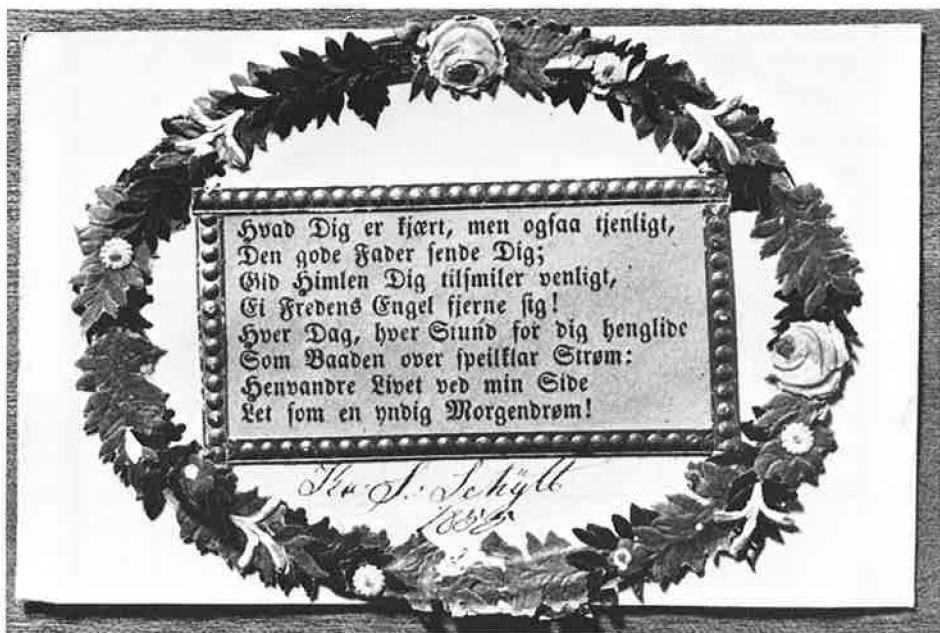 Hvad Dig er kjært, men ogsaa tjenligt,
Den gode Fader sende Dig;
Gid Himlen Dig tilsmiler venligt,
Ei Fredens Engel fjerne sig!
Hver Dag, hver Stund for dig henglide
Som Baaden over speilklar Strøm:
Henvandre Livet ved min Side
Let som en yndig Morgendrøm!
S. Schÿtt